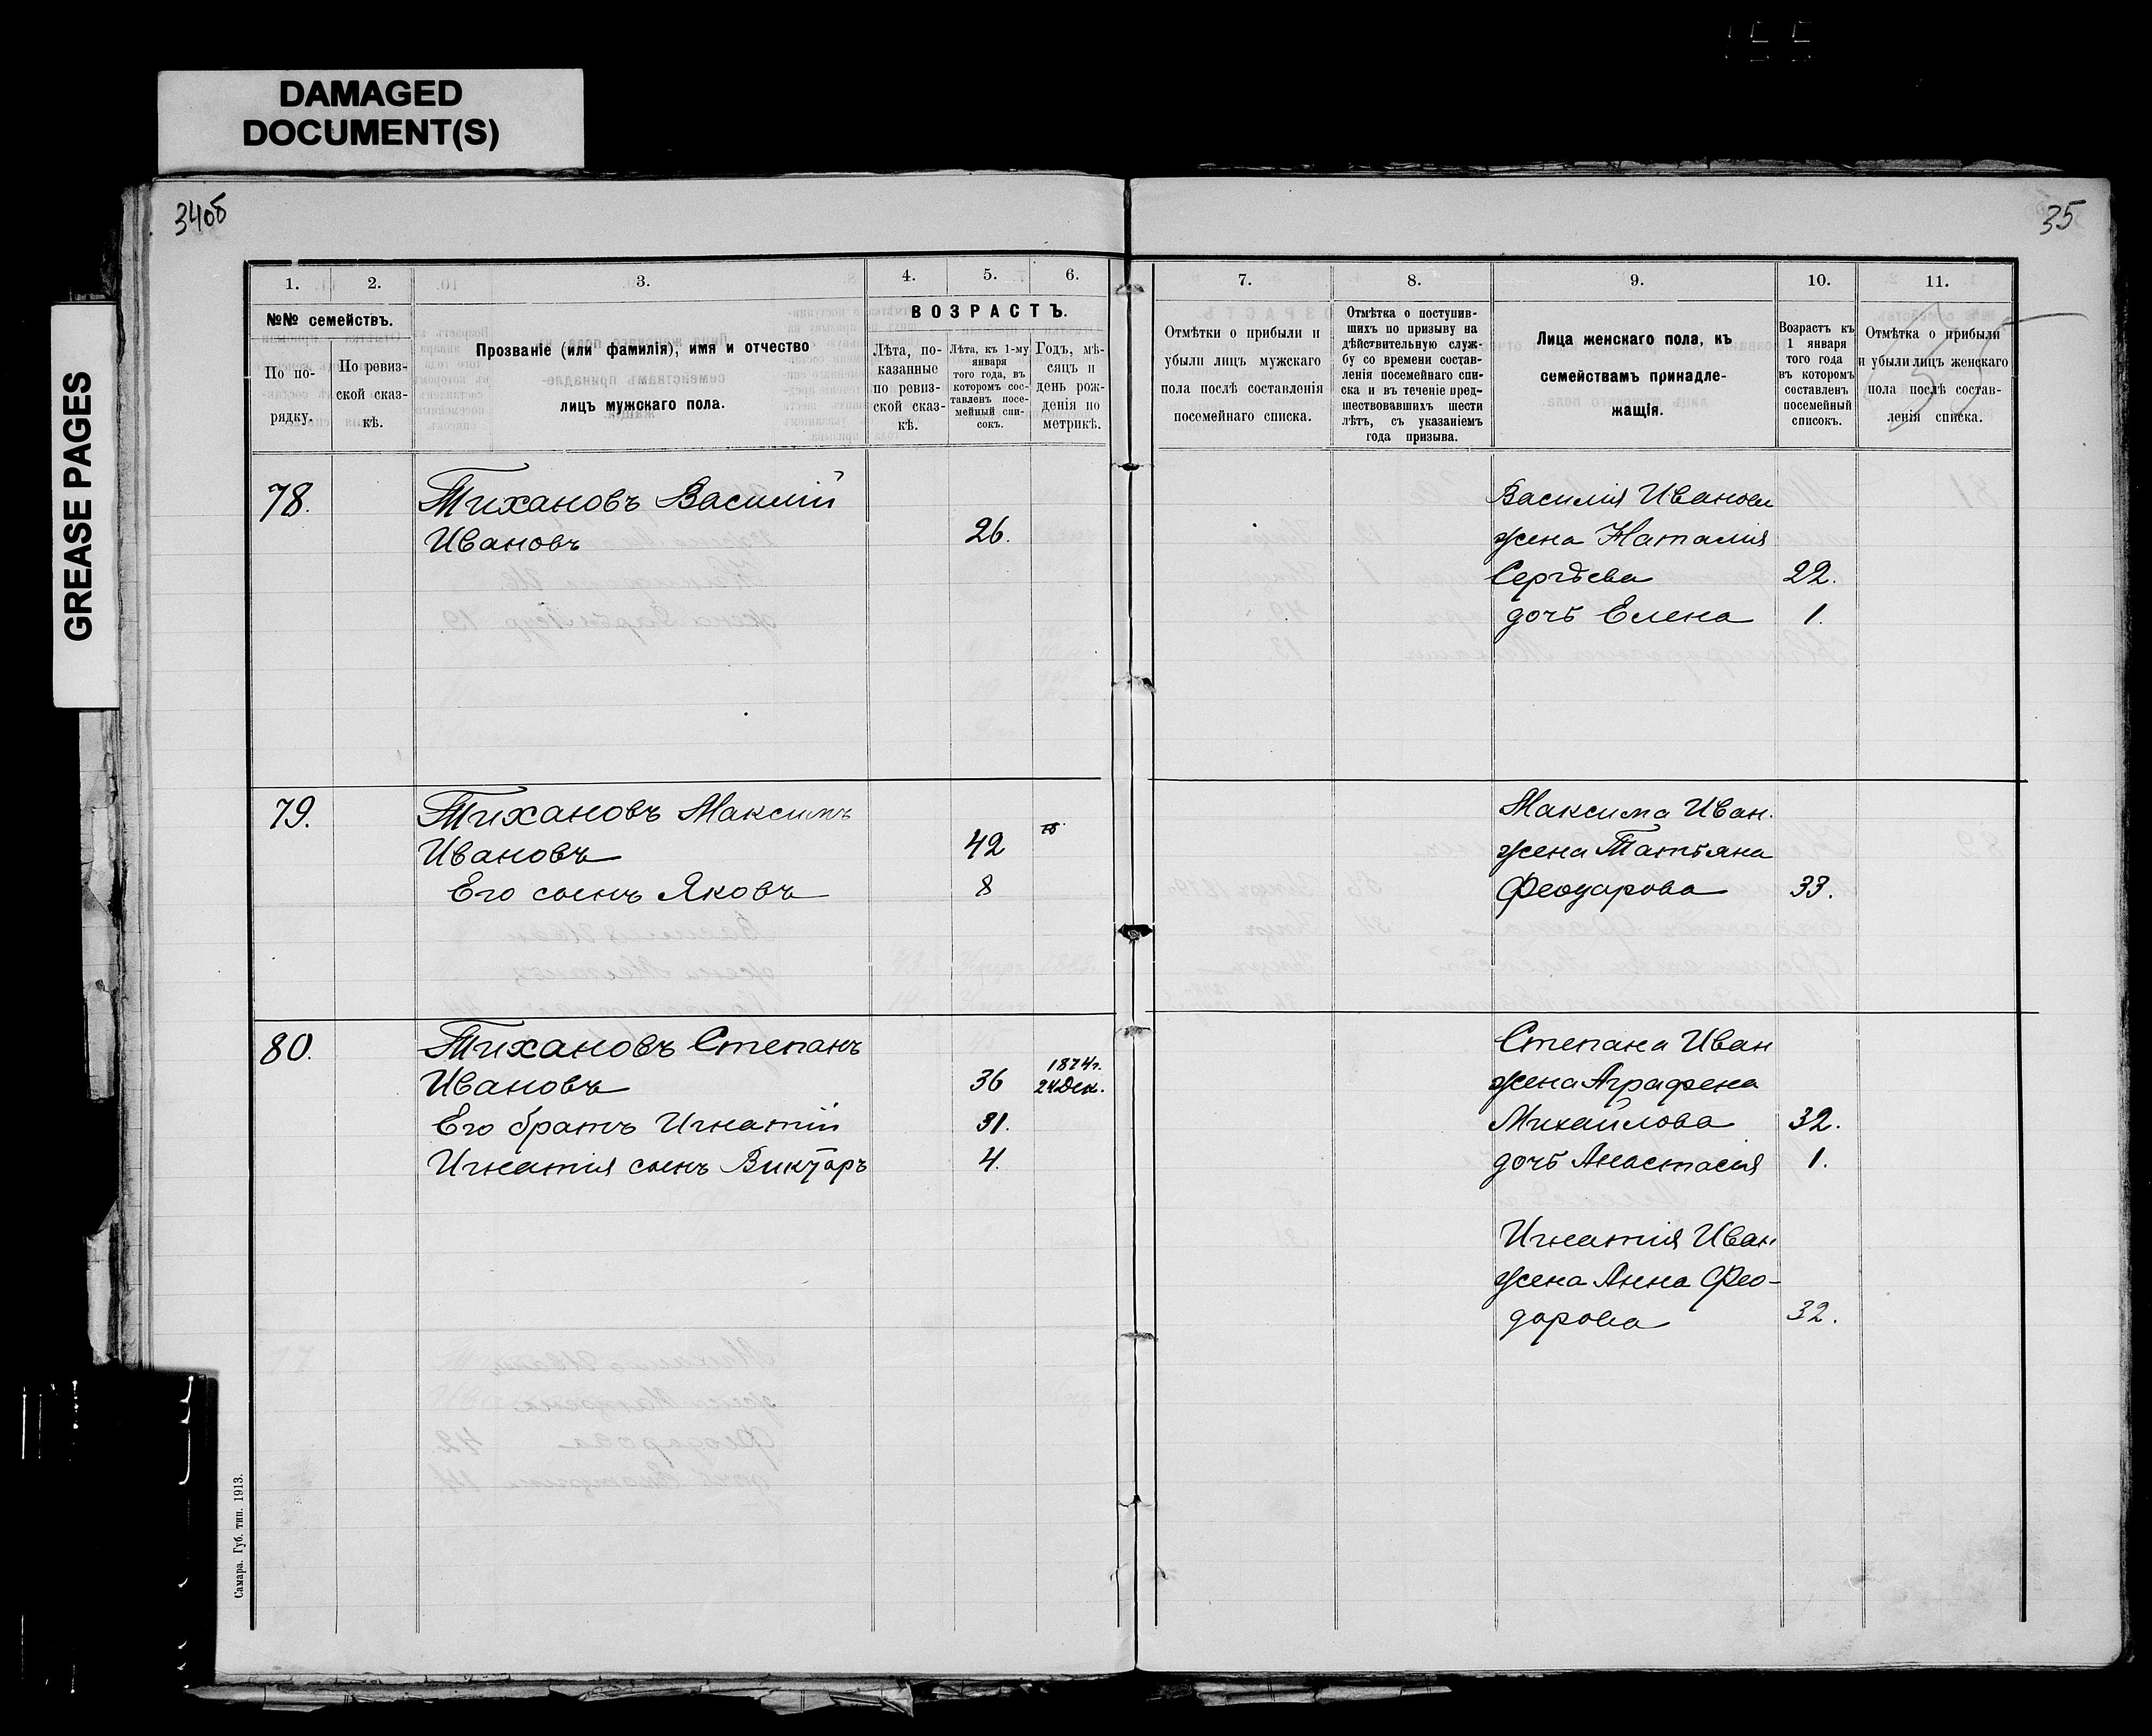 DAMAGED
DOCUMENT(S)
GREASE PAGES
34об
35
1.
2.
3.
4.
5.
6.
№№ семействъ.
По по-
рядку.
По ревиз-
ской сказ-
кѣ.
Прозваніе (или фамилія), имя и отчество
лицъ мужскаго пола.
ВОЗРАСТЪ.
Лѣта, по-
казанные
по ревиз-
ской сказ-
кѣ.
Лѣта, къ 1-му
января
того года, въ
которомъ сос-
тавленъ посе-
мейный спи-
сокъ.
Годъ, мѣ-
сяцъ и
день рож-
денія по
метрикѣ.
7.
8.
9.
10.
11.
Отмѣтки о прибыли и
убыли лицъ мужскаго
пола послѣ составленія
посемейнаго списка.
Отмѣтка о поступив-
шихъ по призыву на
дѣйствительную служ-
бу со времени состав-
ленія посемейнаго спи-
ска и въ теченіе пред-
шествовавшихъ шести
лѣтъ, съ указаніемъ
года призыва.
Лица женскаго пола, къ
семействамъ принадле-
жащія.
Возрастъ къ
1 января
того года
въ которомъ
составленъ
посемейный
списокъ.
Отмѣтка о прибыли
и убыли лицъ женскаго
пола послѣ состав-
ленія списка.
78. Тихановъ Василій
Ивановъ 26.
Василія Иванов
жена Наталия
Сергѣева 22.
дочь Елена 1.
79. Тихановъ Максимъ
Ивановъ 42
Его сынъ Яковъ 8
Максима Иван.
жена Татьяна
Феодарова 33.
80. Тихановъ Степанъ
Ивановъ 36 1874г. 24 Дек.
Его братъ Игнатій 31.
Игнатія сынъ Викторъ 4.
Степана Иван
жена Аграфена
Михайлова 32.
дочь Анастасия 1.
Игнатия Иван
жена Анна Фео-
дорова 32.
Самара. Губ. тип. 1913.